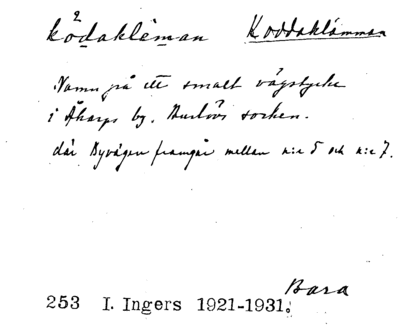 ködaklèman Koddaklämman
Namn på ett smalt vägstycke
i Åkarps by. Burlövs socken.
där Byvägen framgår mellan n:r 5 och n:r 7.
Bara
253 I. Ingers 1921-1931.